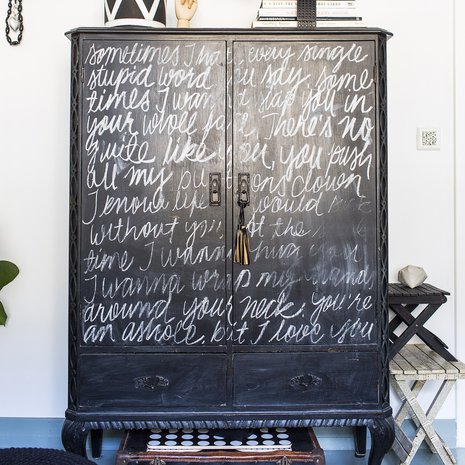 sometimes I hate every single
stupid word you say, some
times I wanna slap you in
your whole face. There's no
quite like you, you push
all my buttons down
I know life would
without you. At the
time I wanna hug you
I wanna wrap my hand
around your neck. you're
an asshole, but I love you